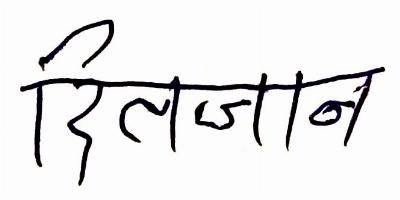 दिलजान